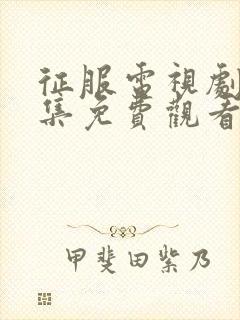 征服電視劇
集免費觀看
甲斐田紫乃